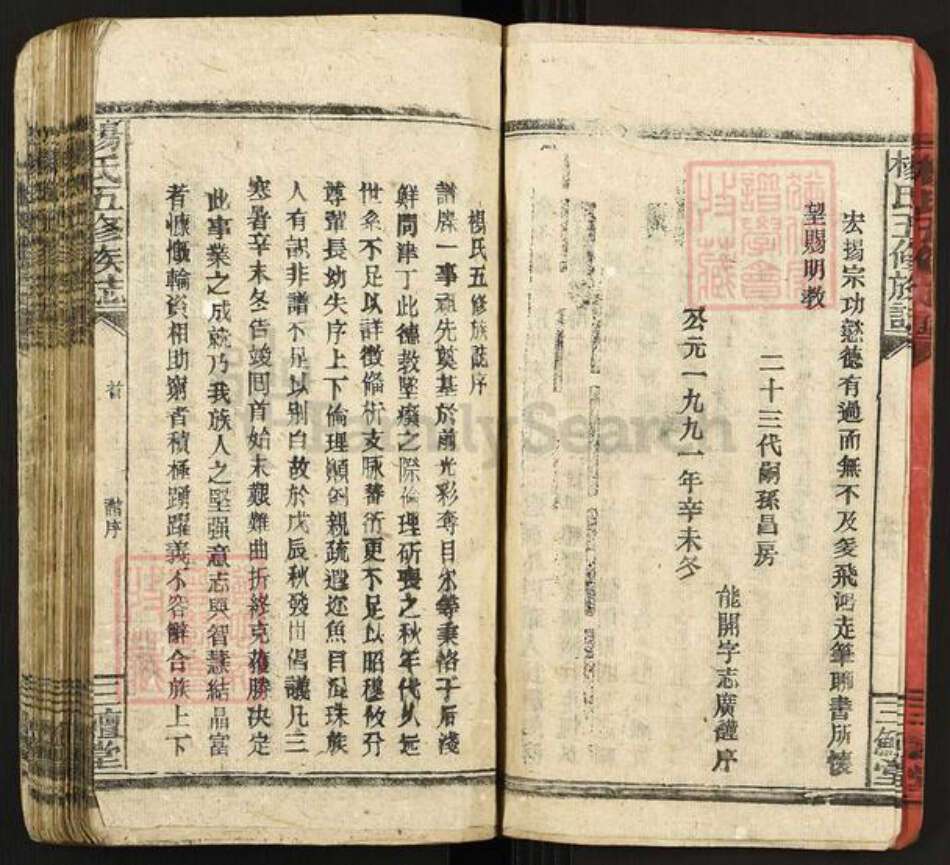 楊氏五修族譜
三鱣堂
宏揚宗功懿德有過而無不及爰飛鴻走筆聊書所懷
望賜明教
二十三代嗣孫昌房
能開字志廣謹序
公元一九九一年辛未冬
楊氏五修族誌序
譜牒一事祖先奠基於前光彩奪目尔等秉恪于后淺
鮮問津丁此德教堅癈之際倫理斫喪之秋年代久远
世系不足以詳徵條析支脉蕃衍更不足以昭穆攸分
尊輩長幼失序上下倫理顚倒親疏遐迩魚目混珠族
人有識非譜不足以別白故於戊辰秋發出倡議凡三
寒暑辛未冬告竣回首始末艱難曲折終克獲勝决定
此事業之成就乃我族人之堅强意志與智慧結晶富
者慷慨輪資相助窮者積極踴躍義不容辭合族上下
楊氏五修族誌
首
譜序
三鱣堂
FamilySearch